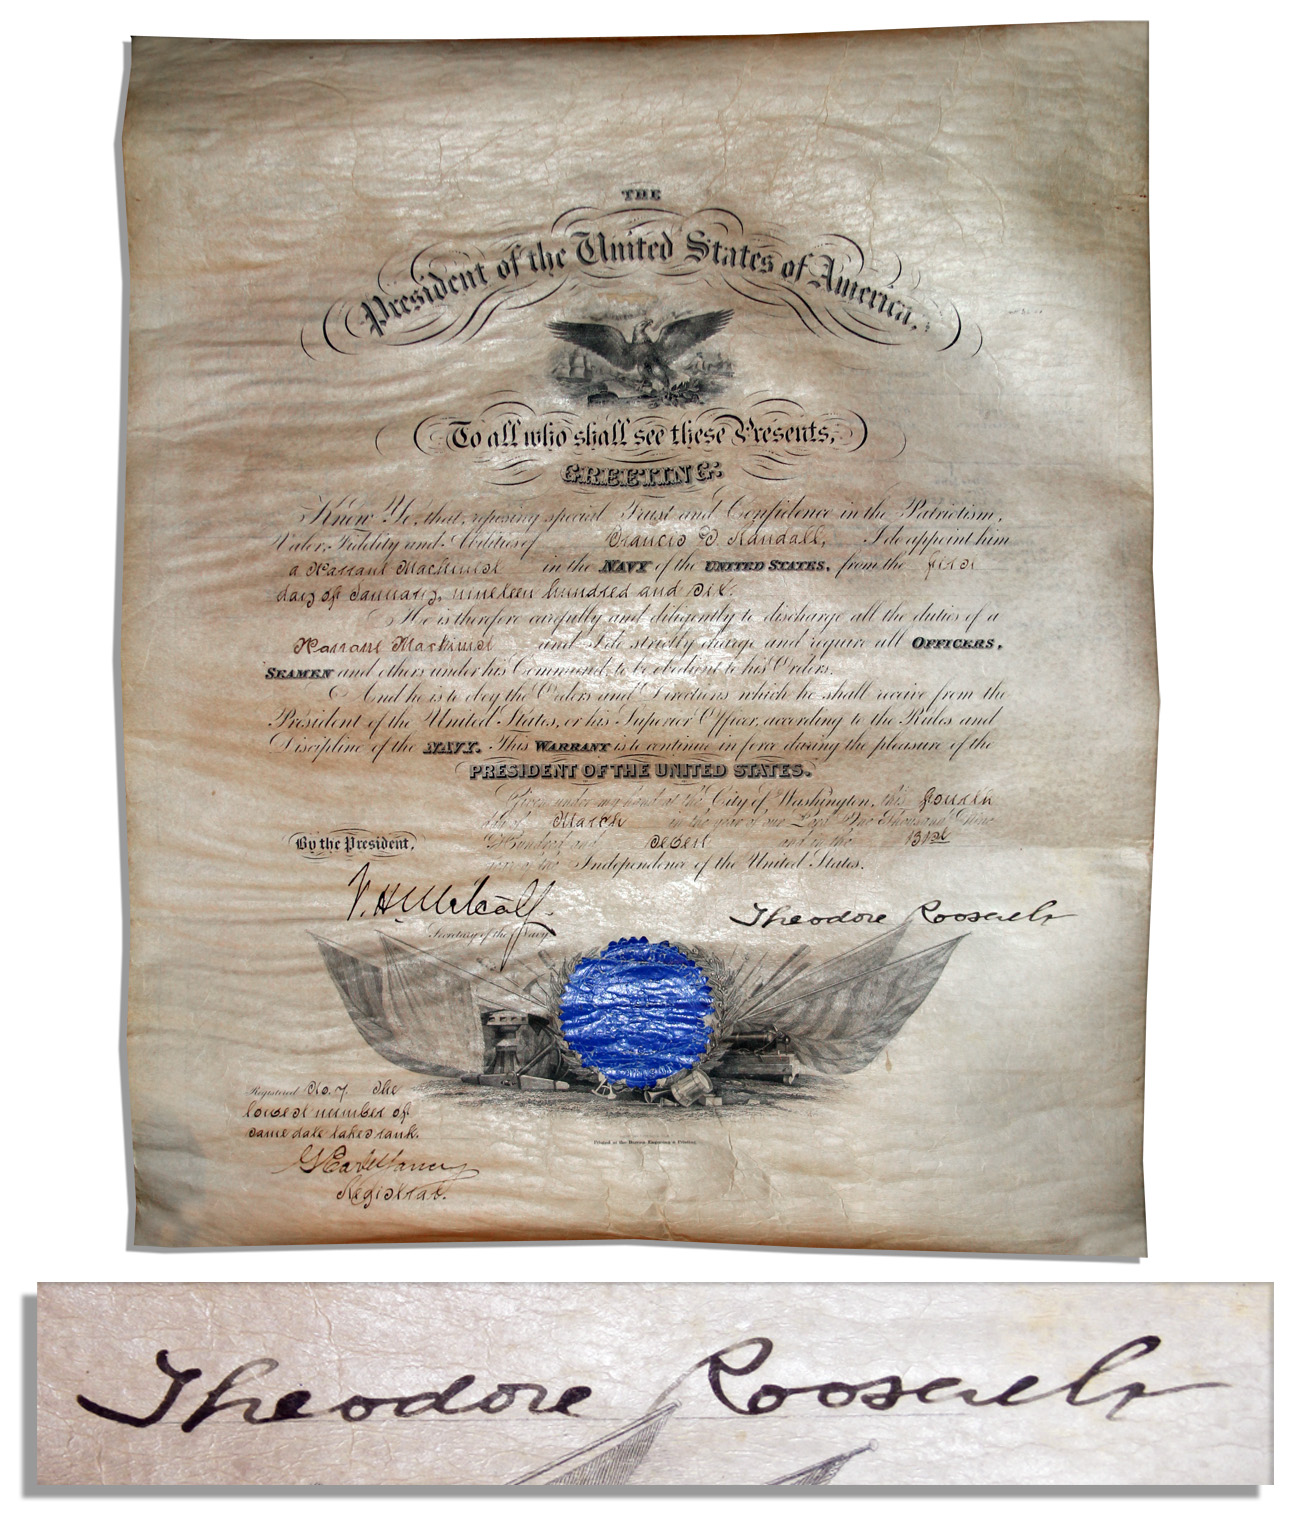 THE
President of the United States of America,
To all who shall see these Presents,
GREETING:
Know Ye, that, reposing special Trust and Confidence in the Patriotism,
Valor, Fidelity and Abilities of Francis G. Randall, I do appoint him
a Warrant Machinist in the NAVY of the UNITED STATES, from the first
day of January, nineteen hundred and six.
He is therefore carefully and diligently to discharge all the duties of a
Warrant Machinist and I do strictly charge and require all OFFICERS,
SEAMEN and others under his Command, to be obedient to his Orders.
And he is to obey the Orders and Directions which he shall receive from the
President of the United States, or his Superior Officer, according to the Rules and
Discipline of the NAVY. This WARRANT is to continue in force during the pleasure of the
PRESIDENT OF THE UNITED STATES.
Given under my hand at the City of Washington, this fourth
day of March in the year of our Lord One Thousand Nine
Hundred and seven and in the 131st
year of the Independence of the United States.
By the President,
V. H. Metcalf
Secretary of the Navy
Theodore Roosevelt
Registered No. 7 The
lowest number of
same date takes rank.
Registrar.
Printed at the Bureau Engraving & Printing.
Theodore Roosevelt